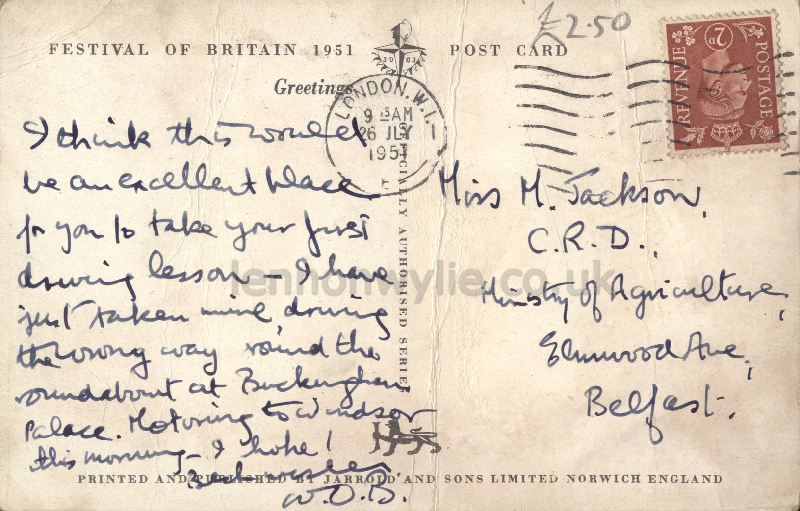 £2.50
FESTIVAL OF BRITAIN 1951 POST CARD
Greetings
LONDON. W.1.
9 15 AM
26 JLY
1951
E
POSTAGE
2D
REVENUE
I think this would
be an excellent place
for you to take your first
driving lesson – I have
just taken mine driving
the wrong way round the
roundabout at Buckingham
Palace. Motoring to Windsor
this morning – I hope!
Best wishes
W.D.B.
OFFICIALLY AUTHORISED SERIES
Miss M. Jackson,
C.R.D.,
Ministry of Agriculture,
Elmwood Ave,
Belfast.
lennonwylie.co.uk
PRINTED AND PUBLISHED BY JARROLD AND SONS LIMITED NORWICH ENGLAND